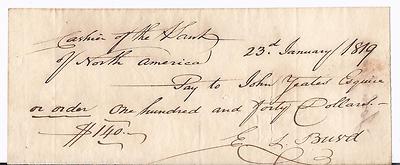 Cashier of the Bank
of North America 23d. January 1819
Pay to John Yeates Esquire
or order One hundred and forty Dollars.—
$140.—
E S Burd